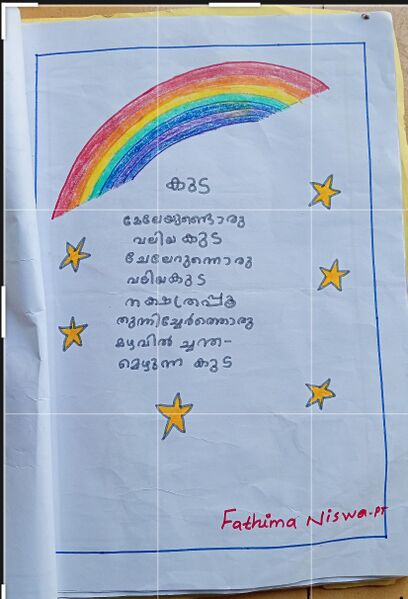 കുട
മേലേയുണ്ടൊരു
വലിയ കുട
ചേലേറുന്നൊരു
വലിയകുട
നക്ഷത്രപ്പൂ
തുന്നിച്ചേർത്തൊരു
മഴവിൽ ച്ചന്ത-
മെഴുന്ന കുട
Fathima Niswa-PT